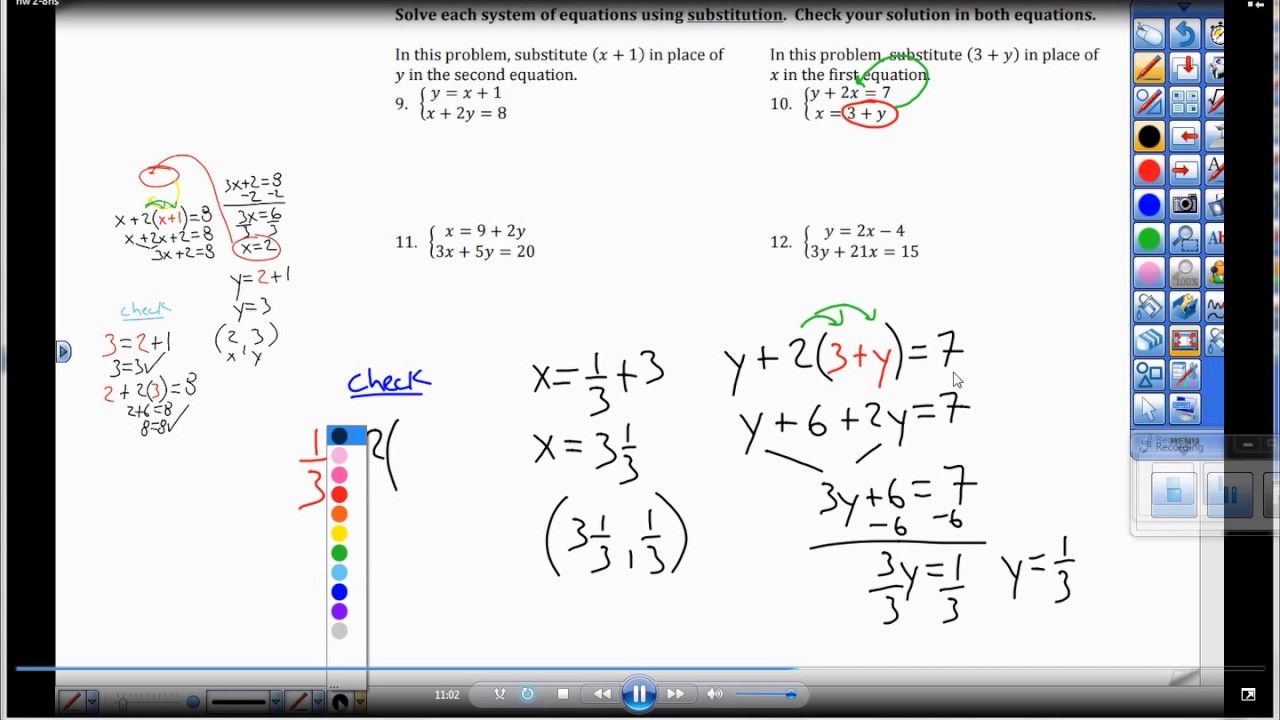 hw 2-8ns
Solve each system of equations using substitution. Check your solution in both equations.
In this problem, substitute (x + 1) in place of
y in the second equation.
9. { y = x + 1
x + 2y = 8
In this problem, substitute (3 + y) in place of
x in the first equation.
10. { y + 2x = 7
x = 3 + y
11. { x = 9 + 2y
3x + 5y = 20
12. { y = 2x − 4
3y + 21x = 15
x + 2(x+1) = 8
x + 2x + 2 = 8
3x + 2 = 8
3x + 2 = 8
-2 -2
3x = 6
3 3
x = 2
y = 2 + 1
y = 3
(2, 3)
x , y
check
3 = 2 + 1
3 = 3 ✓
2 + 2(3) = 8
2 + 6 = 8
8 = 8 ✓
check
1/3 2(
x = 1/3 + 3
x = 3 1/3
(3 1/3, 1/3)
y + 2(3 + y) = 7
y + 6 + 2y = 7
3y + 6 = 7
-6 -6
3y = 1
3 3
y = 1/3
100%
MENU
Recording
11:02